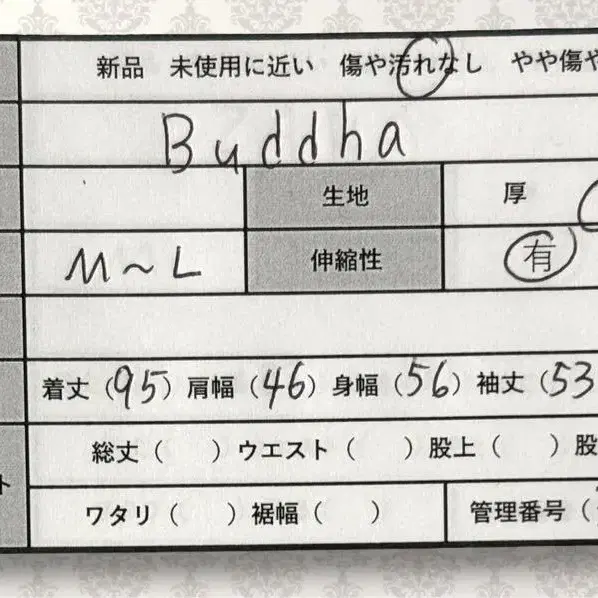 新品 未使用に近い 傷や汚れなし やや傷や
Buddha
生地 厚
M~L 伸縮性 有
着丈(95)肩幅(46)身幅(56)袖丈(53
総丈( )ウエスト( )股上( )股
ト
ワタリ( )裾幅( ) 管理番号(